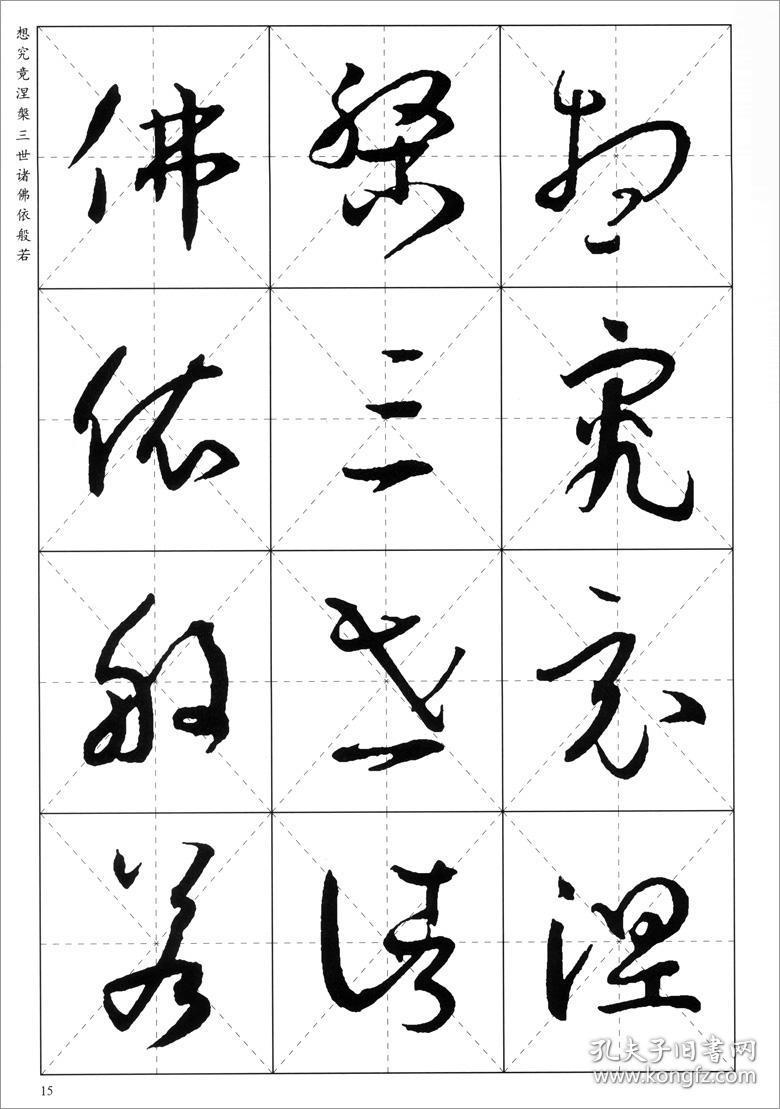 想究竟涅槃三世诸佛依般若
想究竟涅
槃三世诸
佛依般若
15
孔夫子旧书网
www.kongfz.com